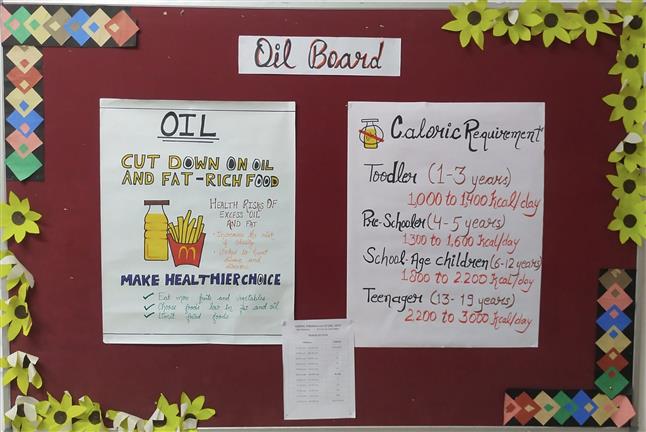 Oil Board
OIL
CUT DOWN ON OIL
AND FAT-RICH FOOD
HEALTH RISKS OF
EXCESS OIL
AND FAT
Increases the risk
of obesity
Linked to heart
disease and
M
MAKE HEALTHIER CHOICE
Eat more fruits and vegetables
Choose foods low in fat and oil
Limit fried foods
Caloric Requirement
Toddler (1-3 years)
1,000 to 1,400 Kcal/day
Pre-Schooler (4-5 years)
1300 to 1,600 Kcal/day
School-Age children (6-12 years)
1,800 to 2,200 Kcal/day
Teenager (13-19 years)
2200 to 3000 Kcal/day